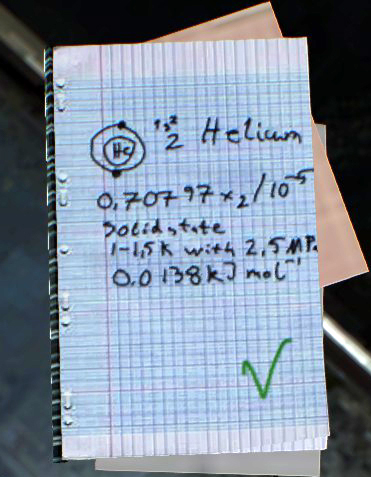 1s²
He 2 Helium
0,70797 x₂/10⁻⁵
Solid state
1-1,5K with 2,5 MPa
0.0138kJ mol⁻¹